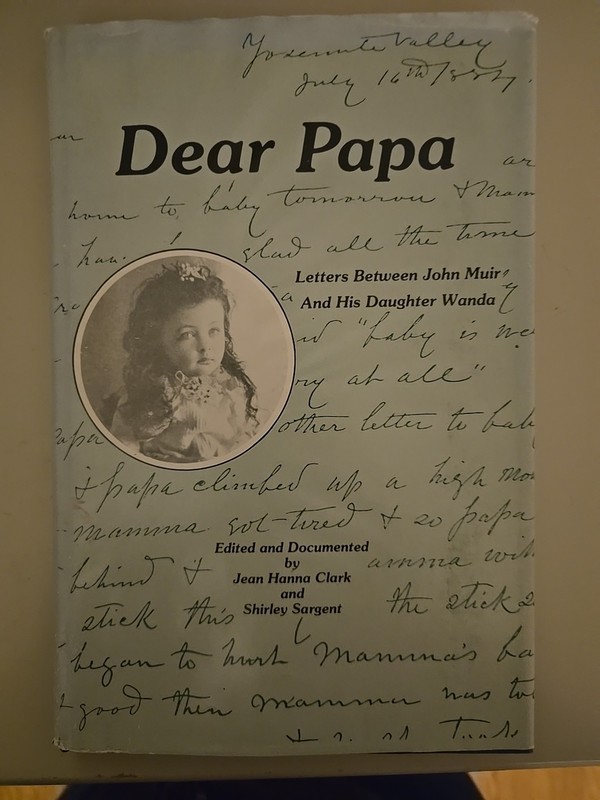 Yosemite Valley
July 16th 1884.
Dear Papa
ar
home to baby tomorrow & Mam
hav glad all the time
Letters Between John Muir
And His Daughter Wanda
"baby is we
ry at all"
Papa other letter to bab
& papa climbed up a high mou
mamma got tired & so papa
Edited and Documented
by
behind & amma with
Jean Hanna Clark
and
stick this the stick s
Shirley Sargent
began to hurt Mamma's ba
& good then Mamma was to
&